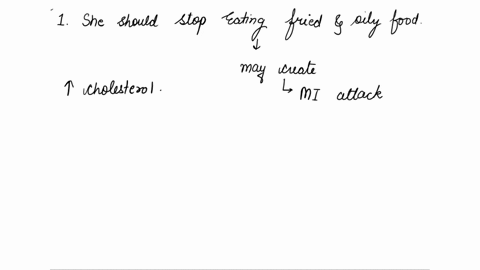 1. She should stop eating fried & oily food.
↓
may create
↑ cholesterol.
↳ MI attack